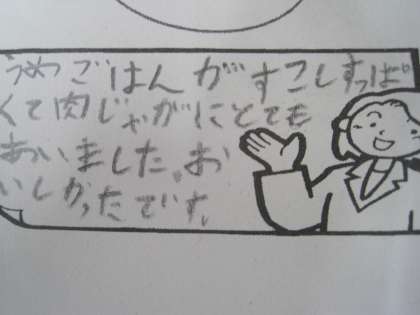 うめごはんがすこしすっぱ
くて肉じゃがにとても
あいました。お
いしかったです。